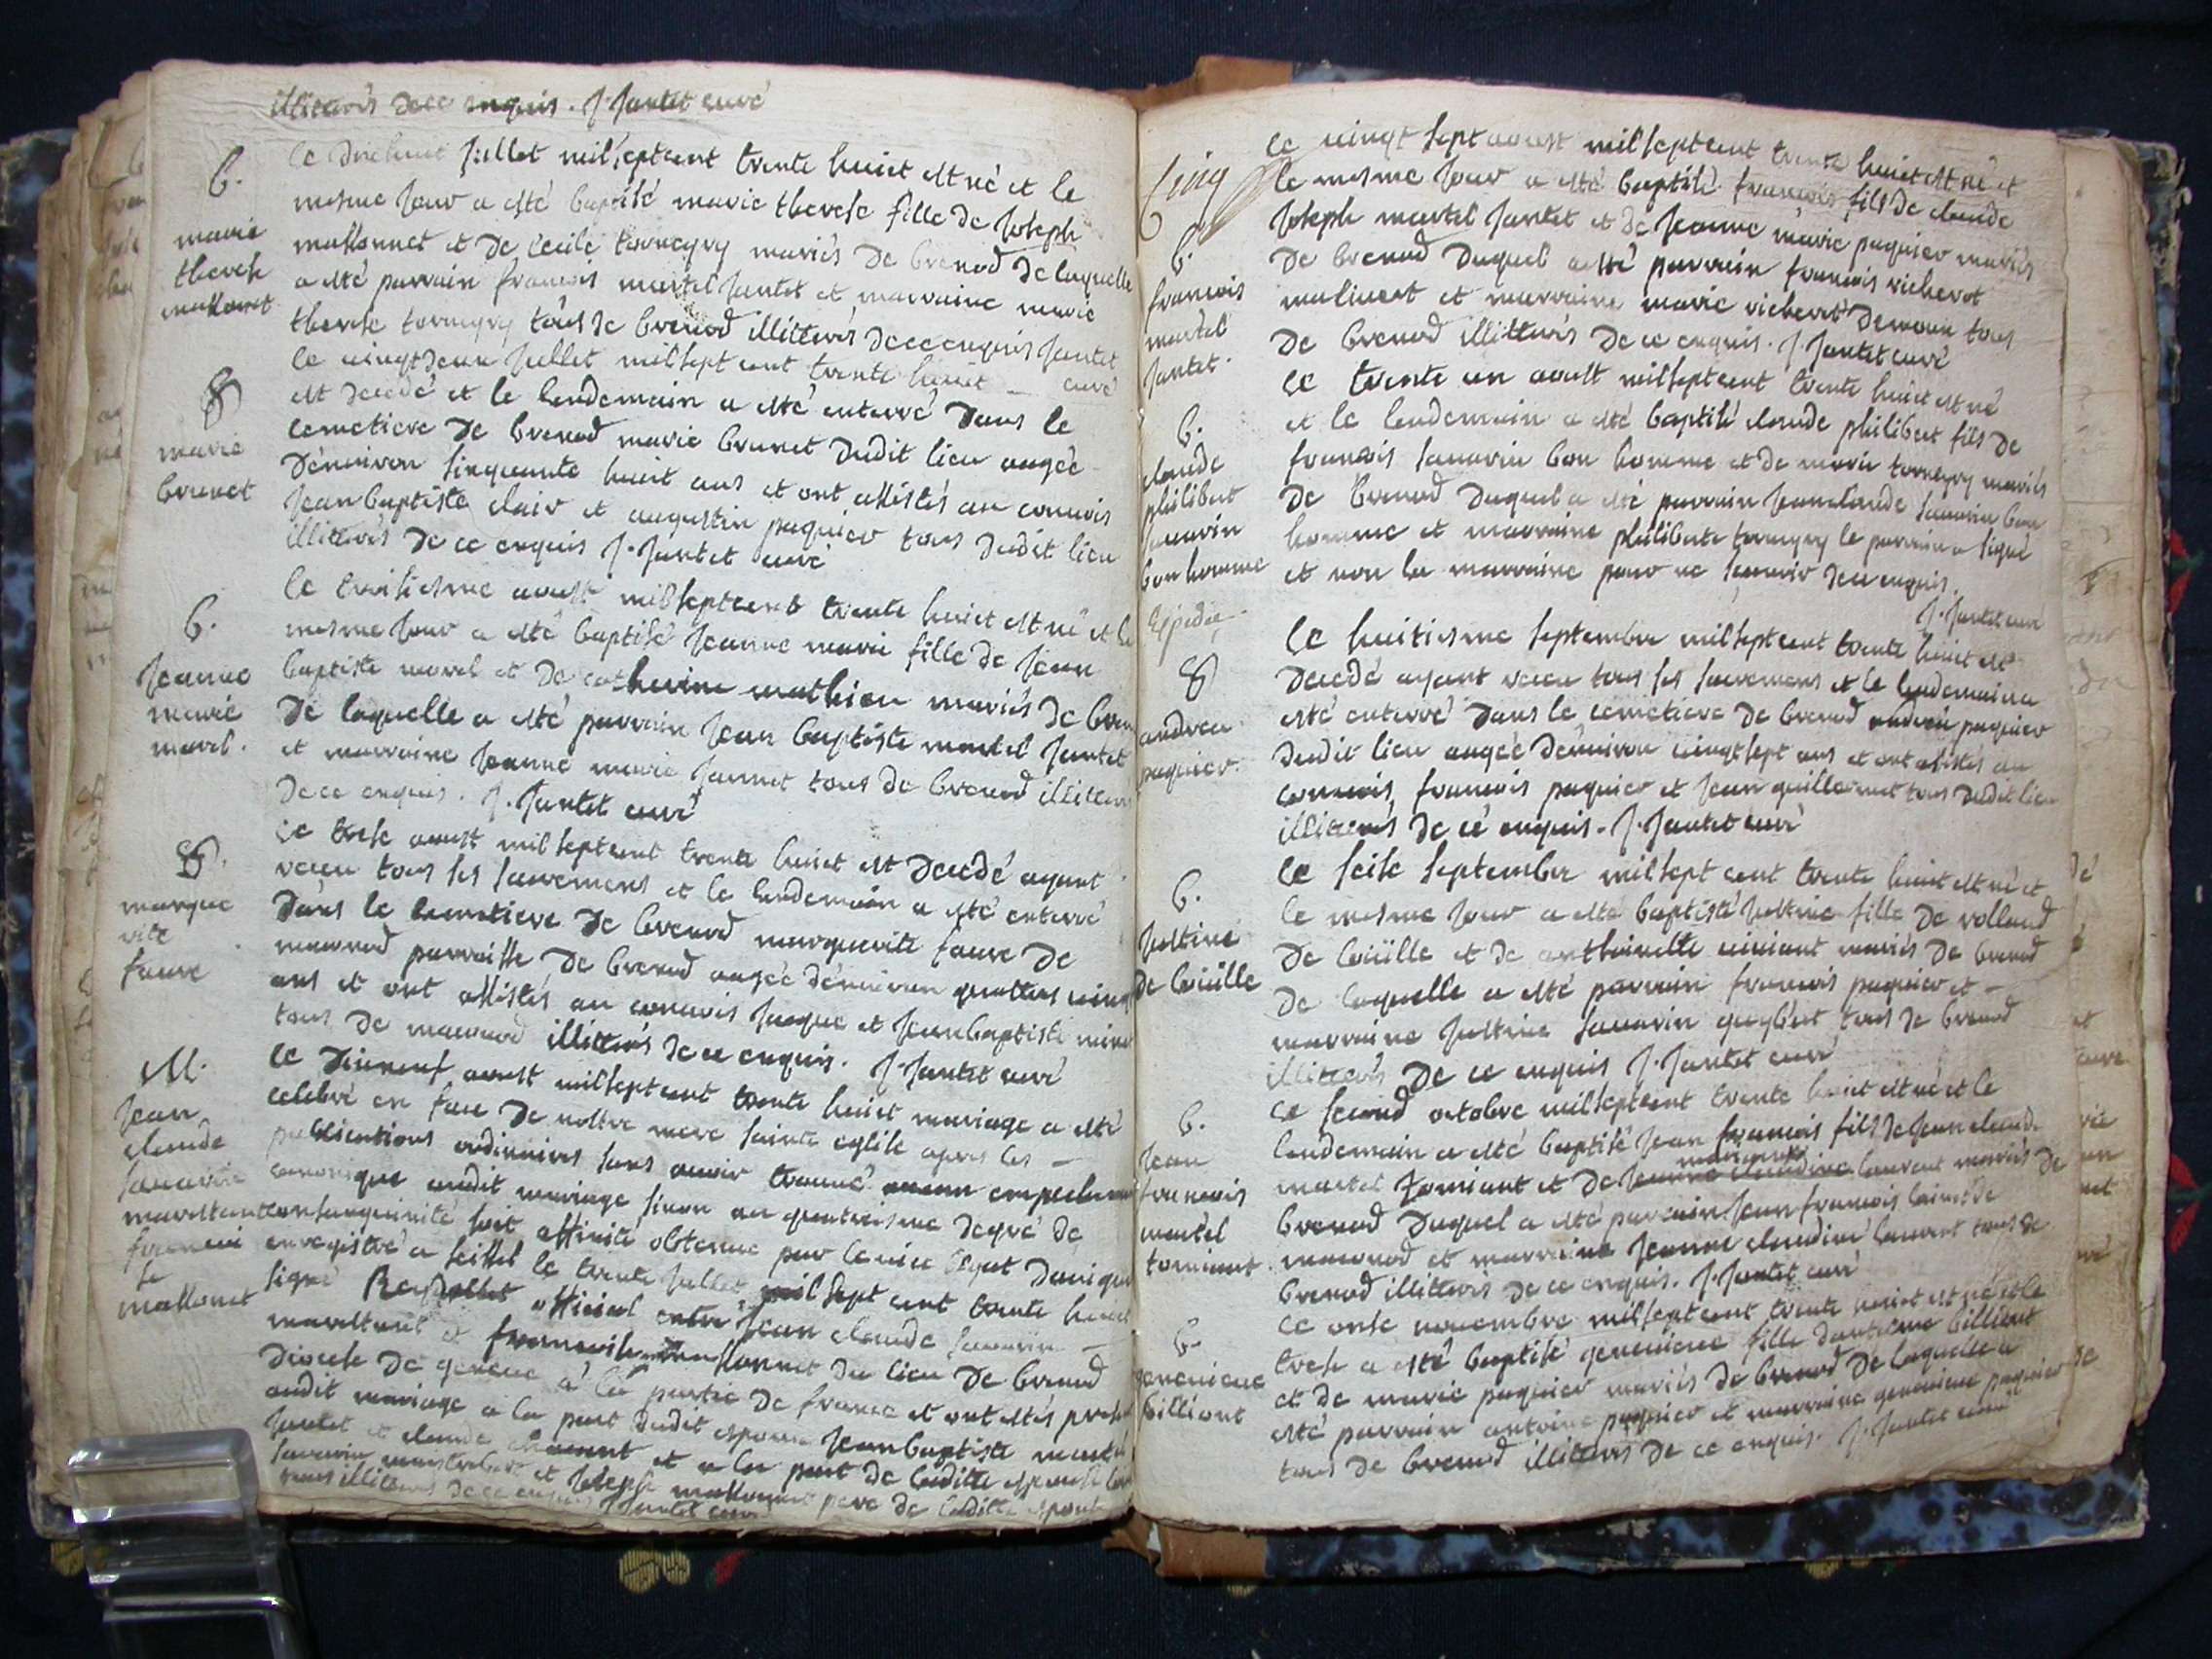 illitterés de ce enquis. J. Jantet curé
b.
marie
therese
massonet
le dixhuit Jullet milseptcent trente huict est né et le
mesme Jour a esté baptisé marie therese fille de Joseph
massonnet et de cecile tornegry mariés de brenod de laquelle
a esté parrain francois martel Jantet et marraine marie
therese tornegry tous de brenod illitterés de ce enquis Jantet
curé
marie
brunet
le vingtdeux Jullet milsept cent trente huict
est decedé et le lendemain a esté enterré dans le
cemetiere de brenod marie brunet dudit lieu augée
denviron sinquante huit ans et ont assistés au convois
Jean baptiste clair et augustin paquier tous dudit lieu
illitterés de ce enquis J. Jantet curé
b.
Jeanne
marie
morel.
le troisiesme aoust milseptcent trente huict est né et le
mesme Jour a esté baptisé Jeanne marie fille de Jean
baptiste morel et de catherine mathieu mariés de bren
de laquelle a esté parrain Jean baptiste martel Jantet
et marraine Jeanne marie Jannet tous de brenod illitterés
de ce enquis. J. Jantet curé
margue
rite
favre
le trese aoust milseptcent trente huict est decedé ayant
receu tous ses sacremens et le lendemain a esté enterré
dans le cemetiere de brenod marguerite favre de
macunod parroisse de brenod augée denviron quattres vingt
ans et ont assistés au convois Jacque et Jean baptiste
tous de macunod illitterés de ce enquis. J. Jantet curé
M.
Jean
claude
savarin
marestant
francoi
se
massonet
le dixneuf aoust milseptcent trente huict mariage a esté
celebré en face de nostre mere sainte eglise apres les
publications ordinaires sans avoir trouvé aucun empechement
canonique audit mariage sinon au quatriesme degré de
consanguinité soit affinité obtenue par le vice legat davignon
enregistré a seissel le trente Jullet mil sept cent trente huict
signé official entre Jean claude savarin
marestant et francoise massonnet du lieu de brenod
diocese de geneve à la partie de france et ont estés present
audit mariage a la part dudit espoux Jean baptiste martel
Jantet et claude et a la part de laditte espouse
savarin et Joseph massonnet pere de laditte espouse
tous illitterés de ce enquis J. Jantet curé
Cinq
b.
francois
martel
Jantet.
le vingt sept aoust milseptcent trente huict est né et
le mesme Jour a esté baptisé francois fils de claude
Joseph martel Jantet et de Jeanne marie paquier mariés
de brenod duquel a esté parrain francois richerot
malivert et marraine marie richerot demoux tous
de brenod illitterés de ce enquis. J. Jantet curé
b.
claude
philibert
savarin
bon homme
Expediée
le trente un aoust milseptcent trente huict est né
et le lendemain a esté baptisé claude philibert fils de
francois savarin bon homme et de marie tornegry mariés
de brenod duquel a esté parrain Jean claude savarin bon
homme et marraine philiberte tornegry le parrain a signé
et non la marraine pour ne scavoir de ce enquis.
J. Jantet curé
andrea
paquier.
le huitiesme septembre milseptcent trente huict est
decedé ayant receu tous ses sacremens et le lendemain a
esté enterré dans le cemetiere de brenod andrea paquier
dudit lieu augée denviron vingt sept ans et ont assistés au
convois francois paquier et Jean guillermet tous dudit lieu
illitterés de ce enquis. J. Jantet curé
b.
Justine
de loiiille
le seise september milsept cent trente huict est né et
le mesme Jour a esté baptisé Justine fille de rolland
de loiiille et de anthoinette viviant mariés de brenod
de laquelle a esté parrain francois paquier et
marraine Justine savarin tous de brenod
illitterés de ce enquis J. Jantet curé
b.
Jean
francois
martel
torniant
le second octobre milseptcent trente huict est né et le
lendemain a esté baptisé Jean francois fils de Jean claude
martel torniant et de Jeanne claudine laurent mariés de
brenod duquel a esté parrain Jean francois de
macunod et marraine Jeanne claudine laurent tous de
brenod illitterés de ce enquis. J. Jantet curé
b.
genevieve
billiont
le onse novembre milseptcent trente huict est né et le
trese a esté baptisé genevieve fille dantoine billiont
et de marie paquier mariés de brenod de laquelle a
esté parrain antoine paquier et marraine genevieve paquier
tous de brenod illitterés de ce enquis. J. Jantet curé